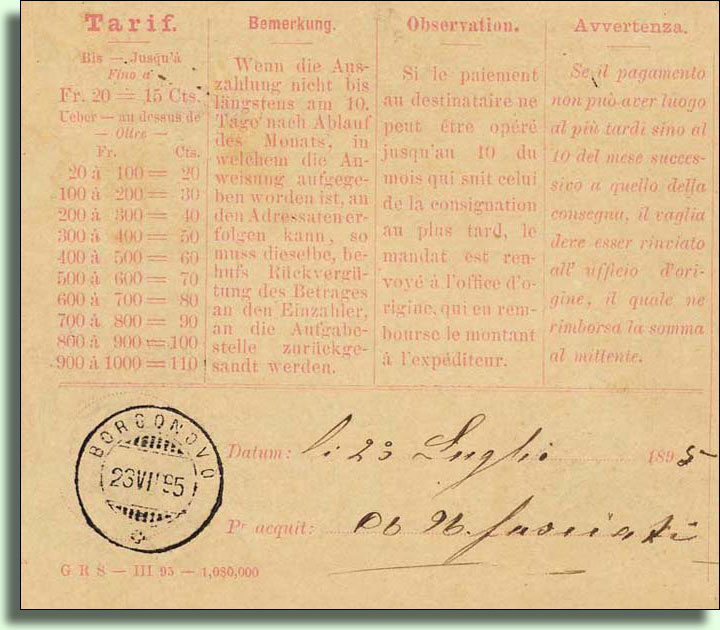 Tarif.
Bis — Jusqu'à
Fino a
Fr. 20 = 15 Cts.
Ueber — au dessus de
— Oltre —
Fr. Cts.
20 à 100 = 20
100 à 200 = 30
200 à 300 = 40
300 à 400 = 50
400 à 500 = 60
500 à 600 = 70
600 à 700 = 80
700 à 800 = 90
800 à 900 = 100
900 à 1000 = 110
Bemerkung.
Wenn die Aus-
zahlung nicht bis
längstens am 10.
Tage nach Ablauf
des Monats, in
welchem die An-
weisung aufgege-
ben worden ist, an
den Adressaten er-
folgen kann, so
muss dieselbe, be-
hufs Rückvergü-
tung des Betrages
an den Einzahler,
an die Aufgabe-
stelle zurückge-
sandt werden.
Observation.
Si le paiement
au destinataire ne
peut être opéré
jusqu'an 10 du
mois qui suit celui
de la consignation
au plus tard, le
mandat est ren-
voyé à l'office d'o-
rigine, qui en rem-
bourse le montant
à l'expéditeur.
Avvertenza.
Se il pagamento
non può aver luogo
al più tardi sino al
10 del mese succes-
sivo a quello della
consegna, il vaglia
deve esser rinviato
all' ufficio d'ori-
gine, il quale ne
rimborsa la somma
al mittente.
BORGONOVO
23 VII 95
Datum: li 23 Luglio 1895
Pr acquit: fasciati
G R S — III 95 — 1,080,000